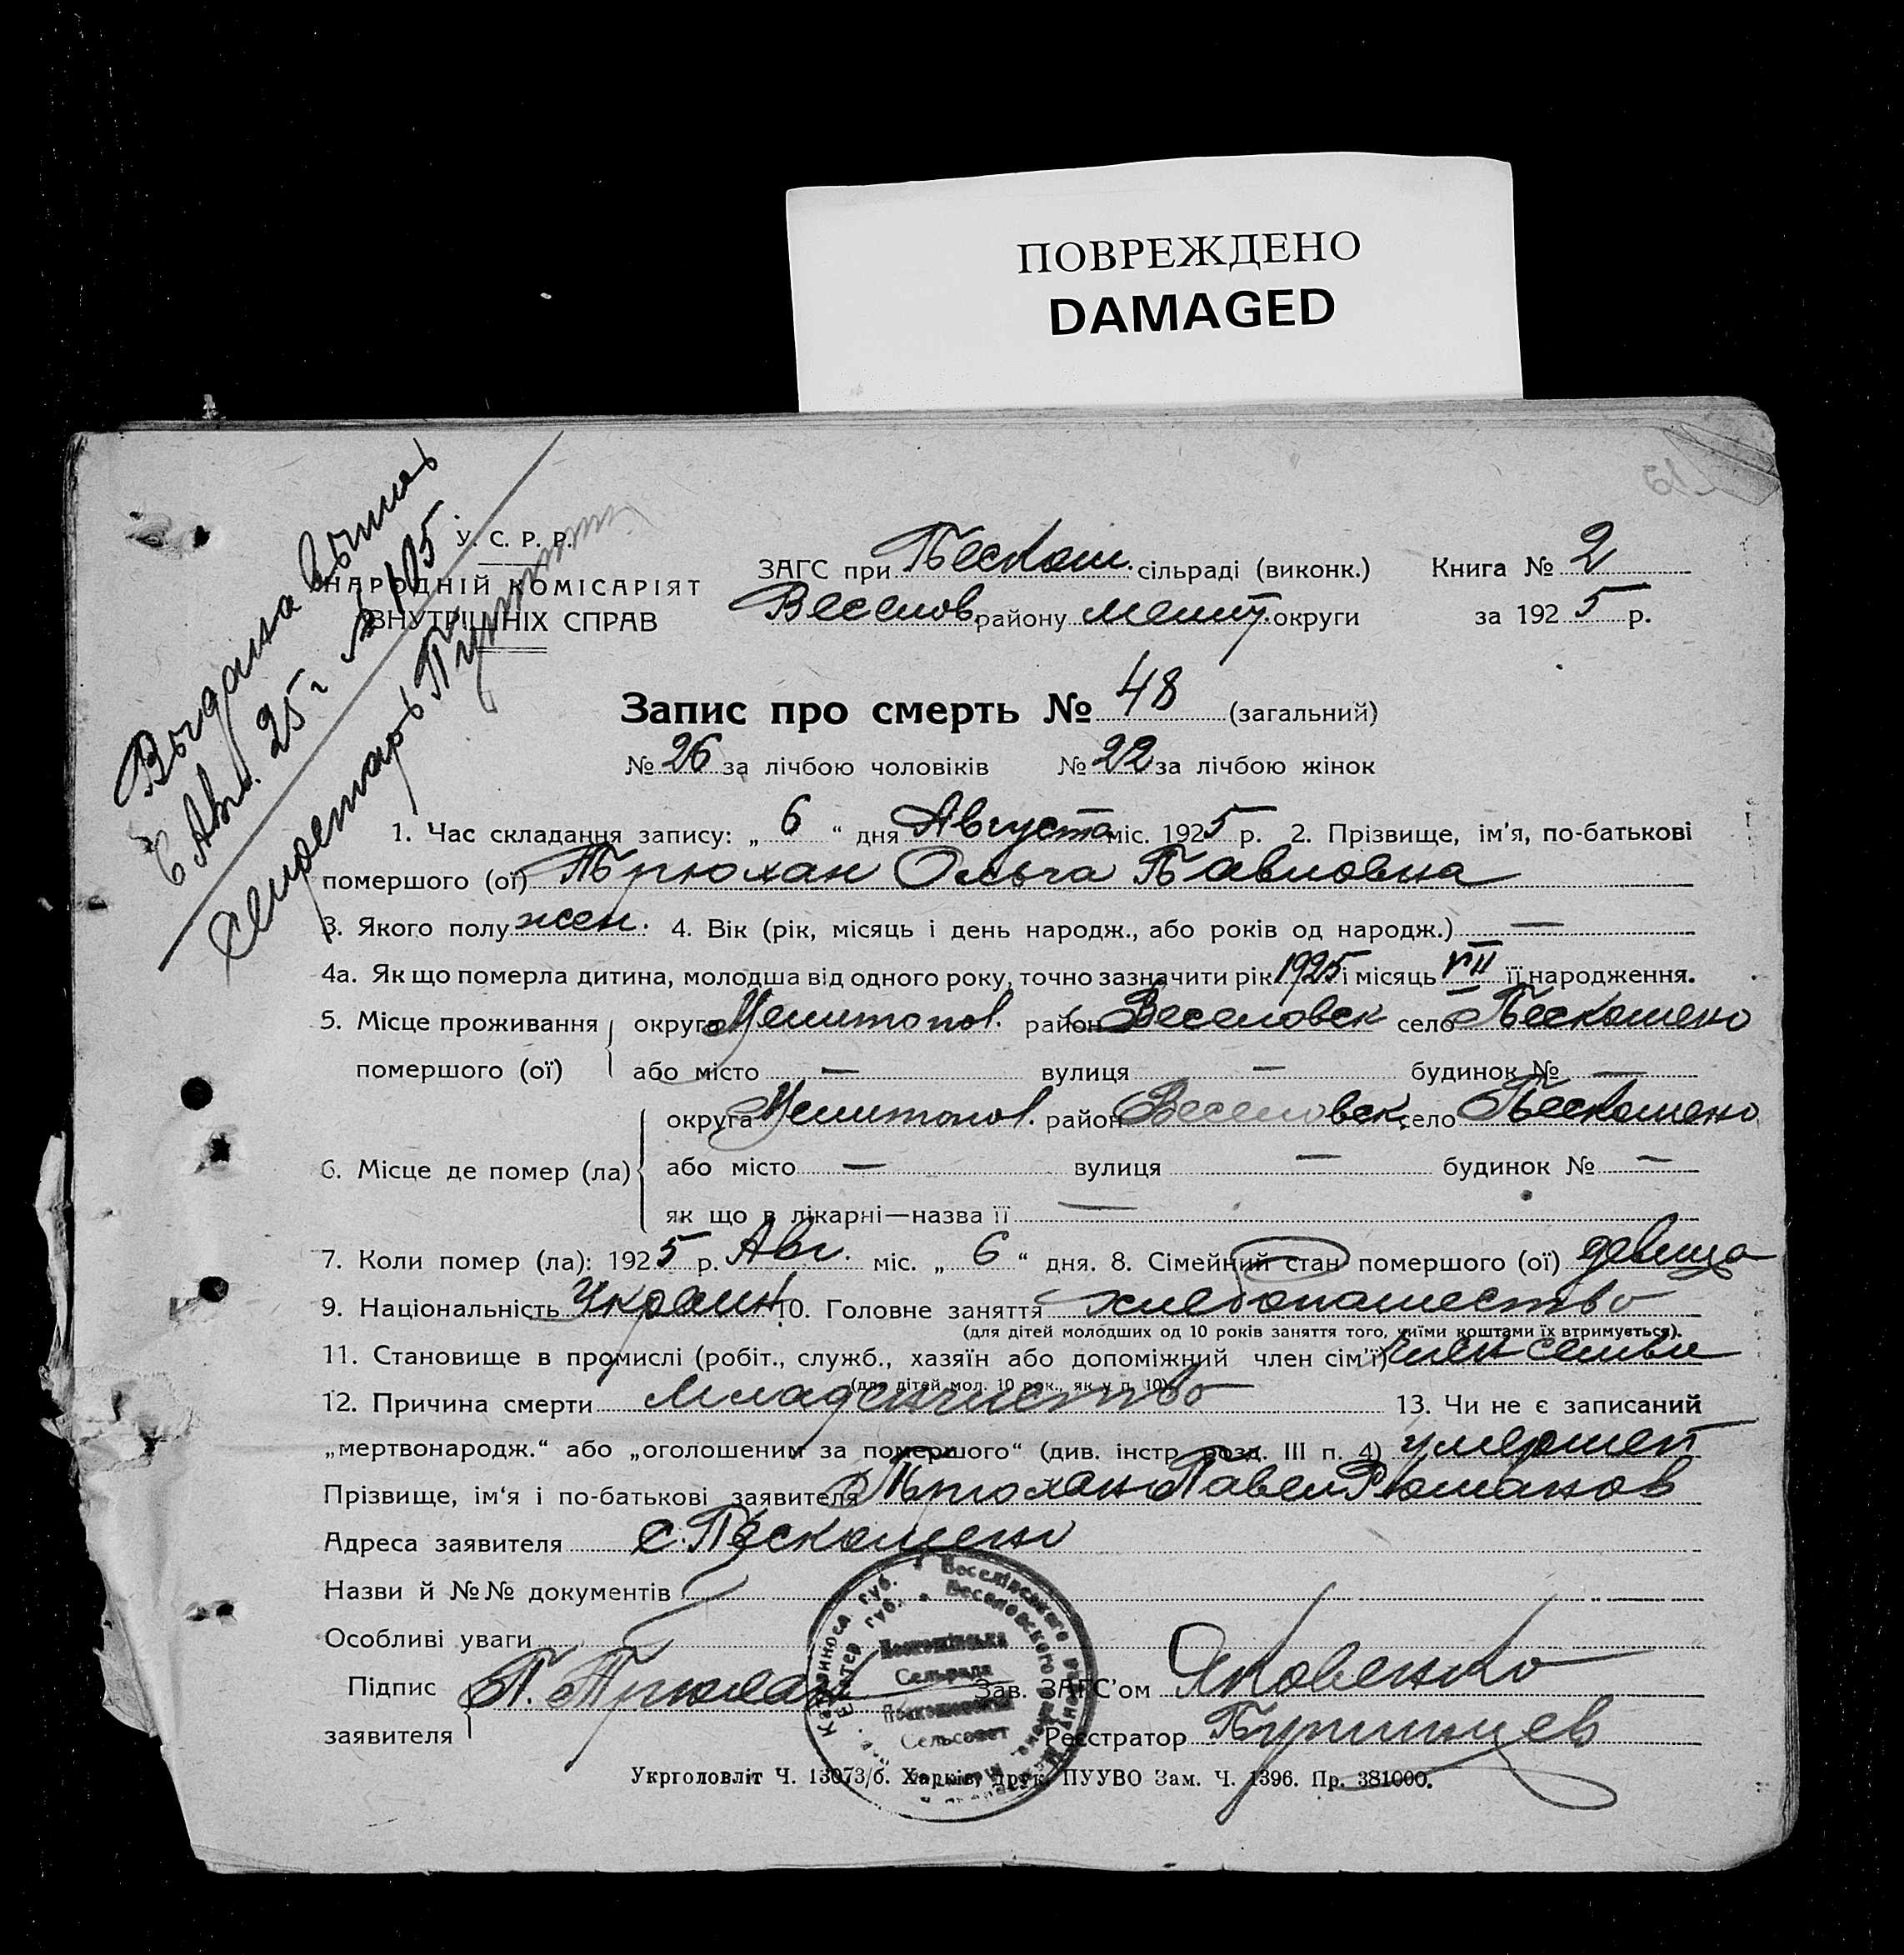 ПОВРЕЖДЕНО
DAMAGED
Выдана выпись
6 Авг. 25 г № 105.
Секретарь
У. С. Р. Р.
НАРОДНІЙ КОМІСАРІЯТ
ВНУТРІШНІХ СПРАВ
ЗАГС при Пескош. сільраді (виконк.) Книга № 2
Веселов. району мелит. округи за 1925 р.
Запис про смерть № 48 (загальний)
№ 26 за лічбою чоловіків № 22 за лічбою жінок
1. Час складання запису: „ 6 “ дня Августа міс. 1925 р. 2. Прізвище, ім'я, по-батькові
помершого (ої) Трюхан Ольга Павловна
3. Якого полу жен. 4. Вік (рік, місяць і день народж., або років од народж.) —
4а. Як що померла дитина, молодша від одного року, точно зазначити рік 1925 і місяць VII її народження.
5. Місце проживання округа Мелитопол. район Веселовск село Пескошено
помершого (ої) або місто — вулиця — будинок № —
округа Мелитопол. район Веселовск село Пескошено
6. Місце де помер (ла) або місто — вулиця — будинок № —
як що в лікарні—назва її —
7. Коли помер (ла): 1925 р. Авг. міс. „ 6 “ дня. 8. Сімейний стан помершого (ої) девица
9. Національність Украин 10. Головне заняття хлебопашество
(для дітей молодших од 10 років заняття того, чиїми коштами їх втримується).
11. Становище в промислі (робіт., служб., хазяїн або допоміжний член сім'ї) член семьи
(для дітей мол. 10 рок., як у п. 10)
12. Причина смерти младенчиство 13. Чи не є записаний
„мертвонародж.“ або „оголошеним за помершого“ (див. інстр. розд. III п. 4) умершей
Прізвище, ім'я і по-батькові заявителя Трюхан Павел Романов
Адреса заявителя с. Пескошено
Назви й №№ документів
Особливі уваги
Підпис П. Трюхан Зав. ЗАГС'ом Яковенко
заявителя Реєстратор
Сельрада
Сельсовет
Укрголовліт Ч. 13073/б. Харків, друк. ПУУВО Зам. Ч. 1396. Пр. 381000.